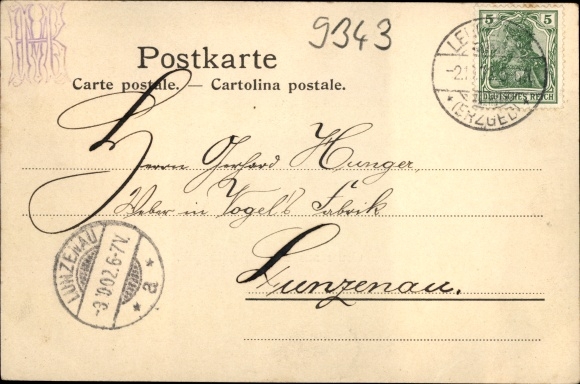 9343
Postkarte
Carte postale. — Cartolina postale.
5 5
DEUTSCHES REICH
(ERZGEB)
Herrn Gerhard Hunger,
Weber in Vogel's Fabrik
Lunzenau.
LUNZENAU
-3.10.02.6-7V.
* a *